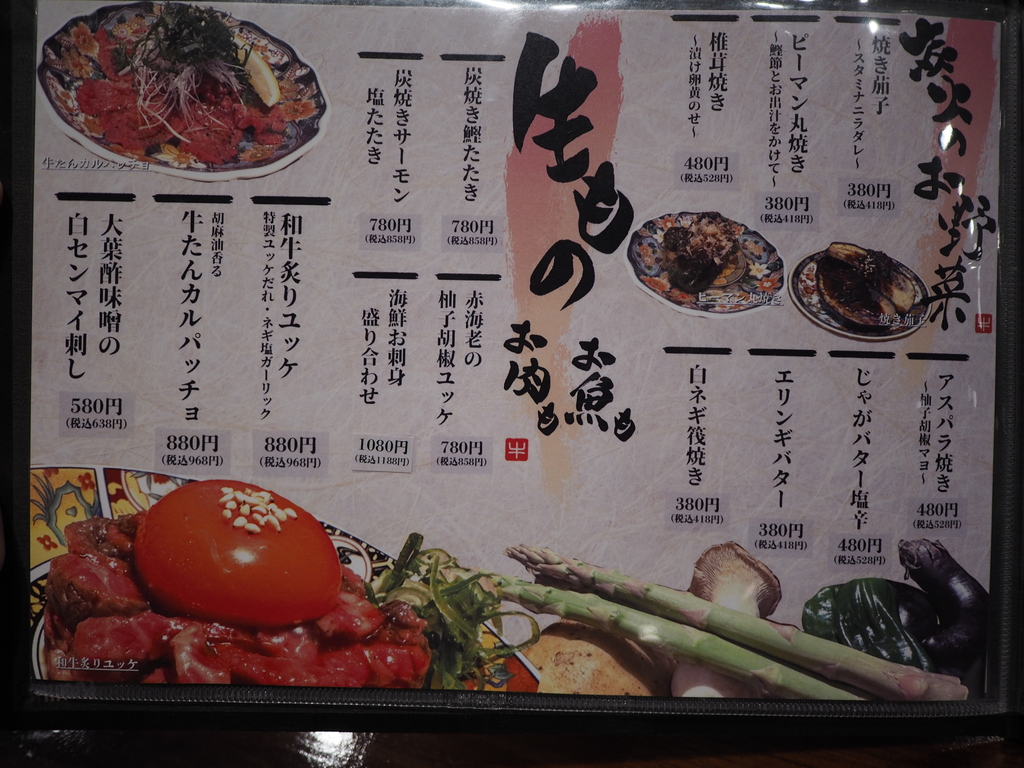 炭火のお野菜
焼き茄子
～スタミナニラダレ～
380円
(税込418円)
ピーマン丸焼き
～鰹節とお出汁をかけて～
380円
(税込418円)
椎茸焼き
～漬け卵黄のせ～
480円
(税込528円)
ピーマン丸焼き
焼き茄子
アスパラ焼き
～柚子胡椒マヨ～
480円
(税込528円)
じゃがバター塩辛
480円
(税込528円)
エリンギバター
380円
(税込418円)
白ネギ筏焼き
380円
(税込418円)
牛もの
お魚も
お肉も
牛
炭焼き鰹たたき
780円
(税込858円)
炭焼きサーモン
塩たたき
780円
(税込858円)
赤海老の
柚子胡椒ユッケ
780円
(税込858円)
海鮮お刺身
盛り合わせ
1080円
(税込1188円)
和牛炙りユッケ
特製ユッケだれ・ネギ塩ガーリック
880円
(税込968円)
胡麻油香る
牛たんカルパッチョ
880円
(税込968円)
大葉酢味噌の
白センマイ刺し
580円
(税込638円)
牛たんカルパッチョ
和牛炙りユッケ